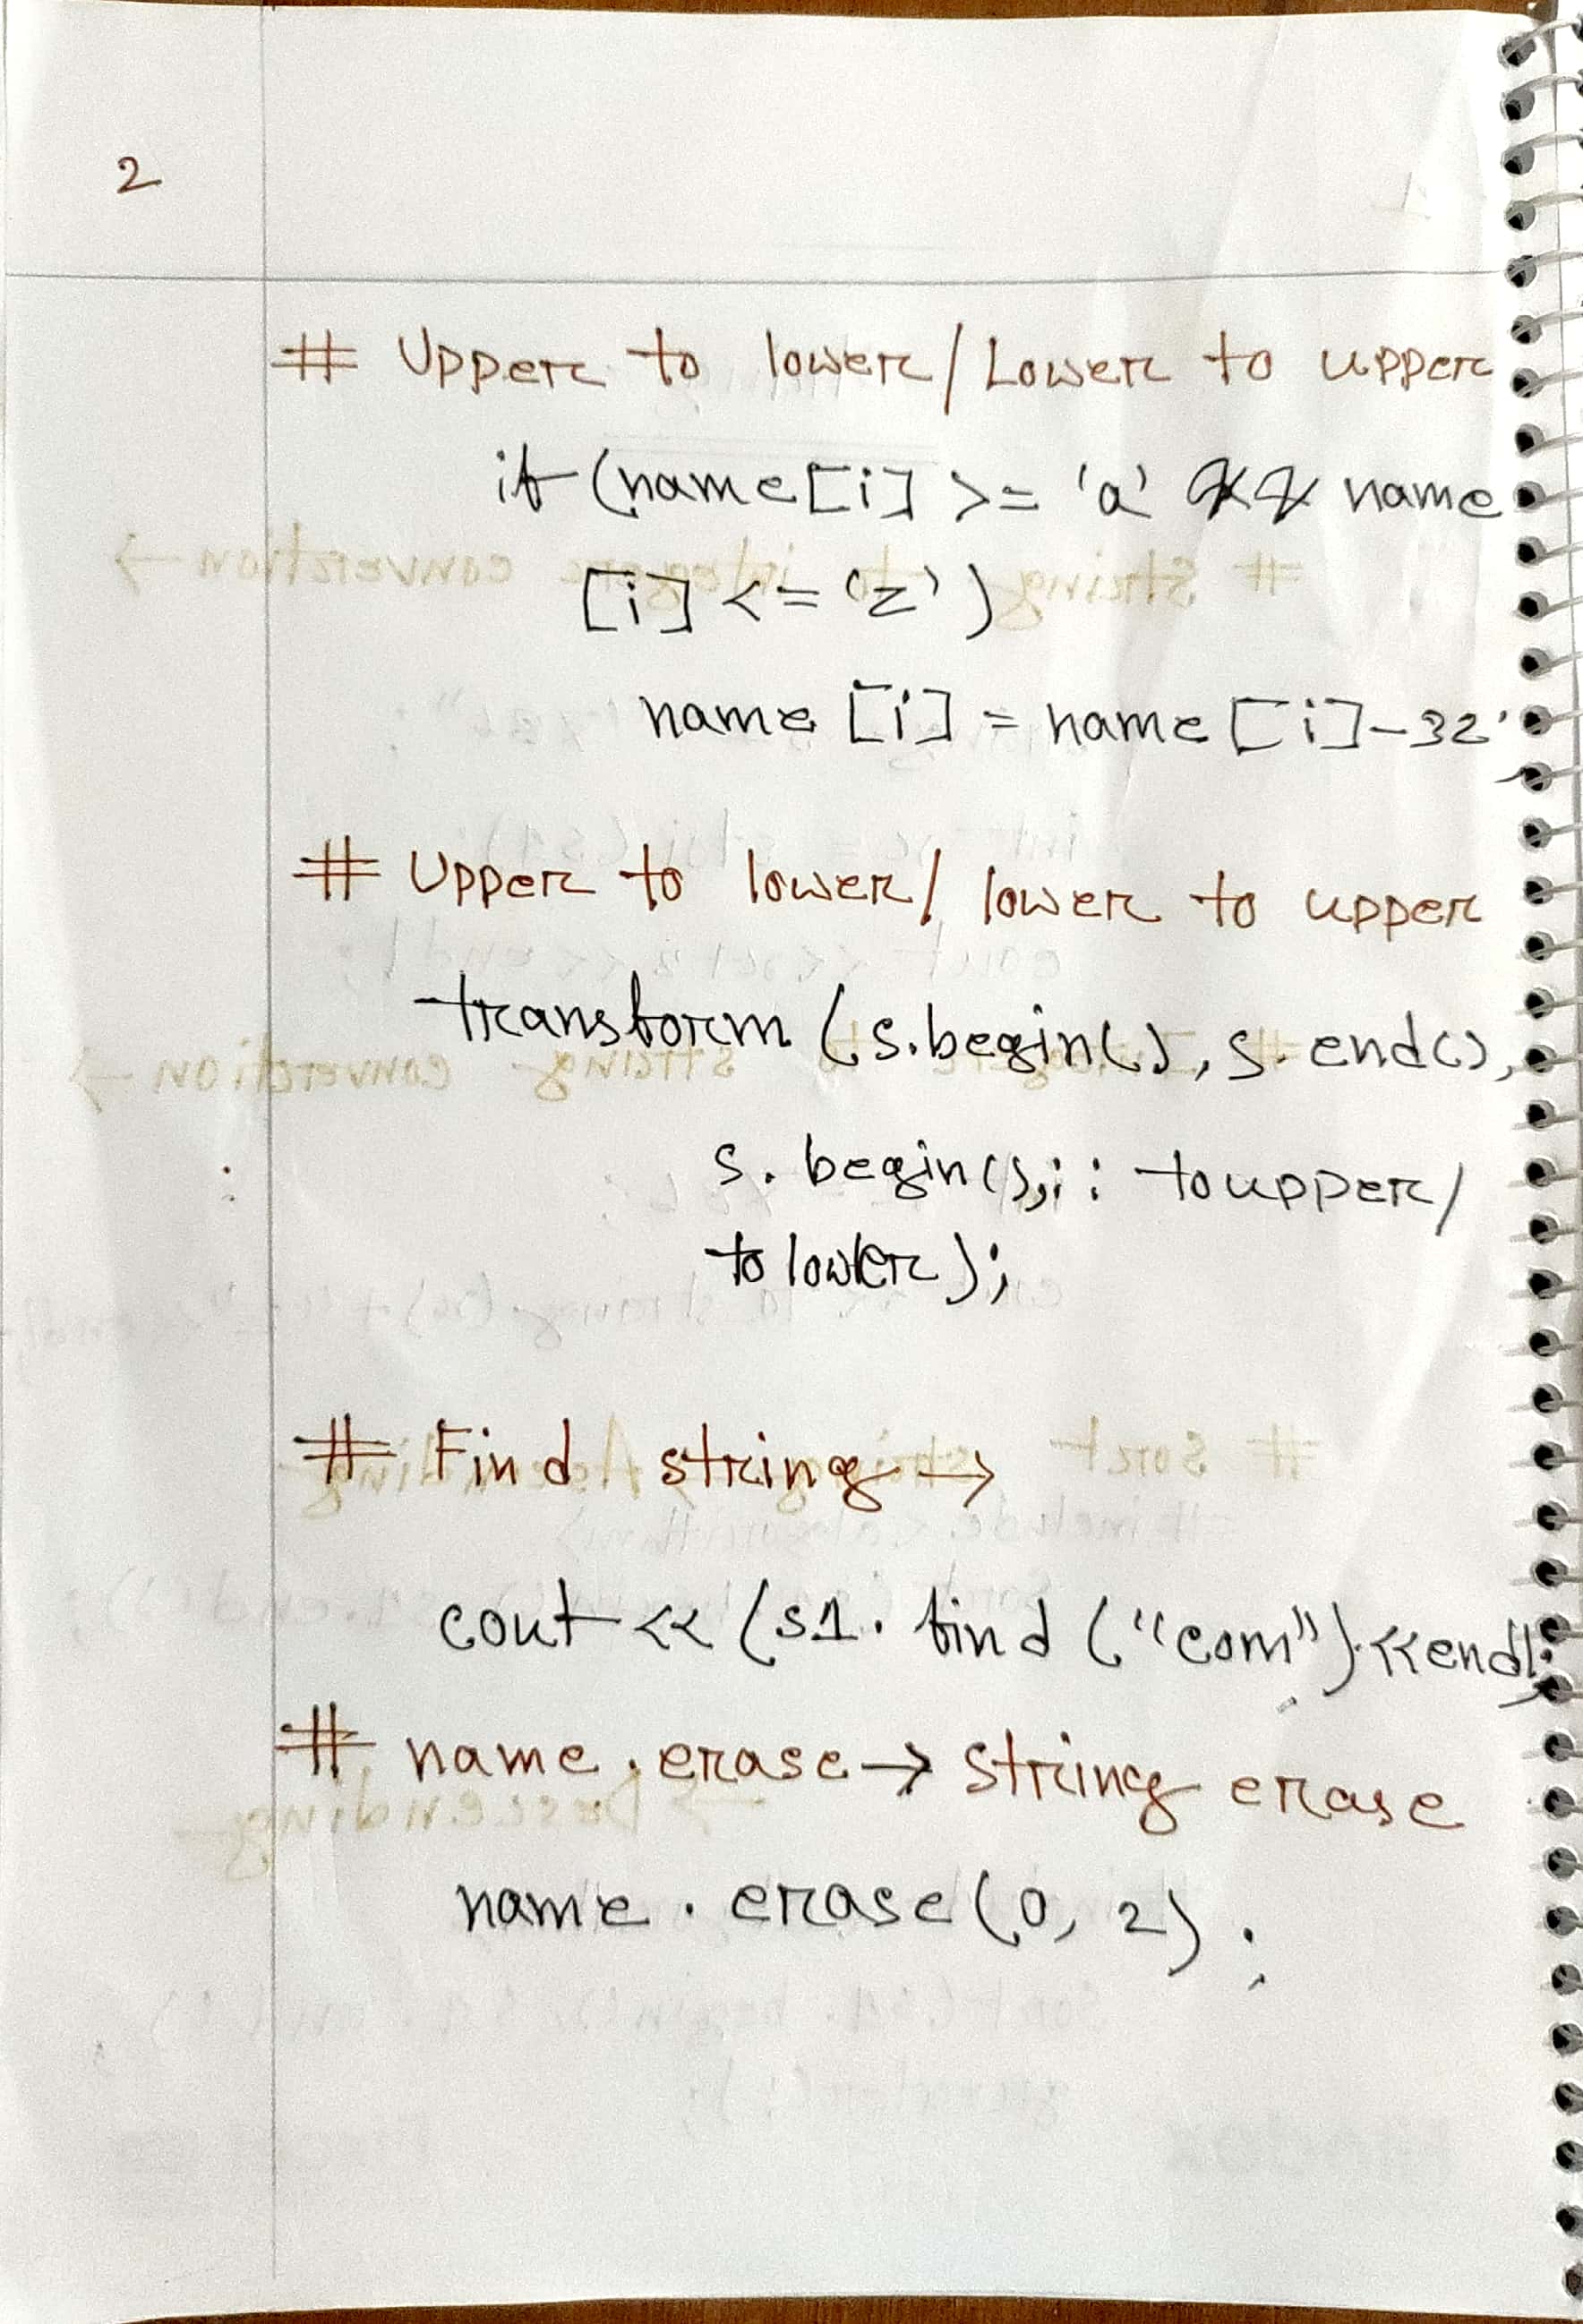 2
# Upper to lower/Lower to upper
if (name[i] >= 'a' && name
[i] <= 'z')
name [i] = name [i]-32;
# Upper to lower/ lower to upper
transform (s.begin(), s.end(),
s. begin(), :: toupper/
to lower);
# Find string →
cout << (s1. find ("com") <<endl;
# name.erase → string erase
name . erase(0, 2) ;